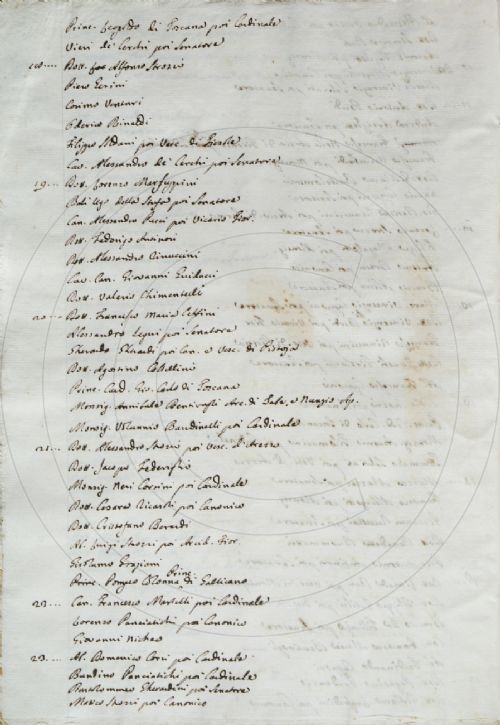 Princ. Leopoldo di Toscana poi Cardinale
Vieri de Cerchi poi Senatore
18.... Dott. Alfonso Strozzi
Piero
Cosimo Venturi
Federico Rinaldi
Filippo Soldani poi Vesc. di Fiesole
Cav. Alessandro de' Cerchi poi Senatore
19... Dott. Lorenzo
Bali Ugo della Stufa poi Senatore
Can. Alessandro Pucci poi Vicario Fior.
Dott. Federigo
Dott. Alessandro Rinuccini
Cav. Can. Giovanni Guiducci
Dott. Valerio Chimentelli
20... Dott. Francesco Maria Ceffini
Alessandro Segni poi Senatore
Gherardo Gherardi poi Can. e Vesc. di Pistoja
Dott. Agostino Coltellini
Princ. Card. Gio. Carlo di Toscana
Monsig. Annibale Bentivogli Arc. di Tebe, e Nunzio Ap.
Monsig. Volunnio Bandinelli poi Cardinale
21... Dott. Alessandro Strozzi poi Vesc. d'Arezzo
Dott. Jacopo
Monsig. Neri Corsini poi Cardinale
Dott. Cesare Ricasoli poi Canonico
Dott. Cristofano Berardi
Al. Luigi Strozzi poi Arcid. Fior.
Girolamo Graziani
Princ. Pompeo Colonna Princ. di Gallicano
22... Can. Francesco Martelli poi Cardinale
Lorenzo Panciatichi poi Canonico
Giovanni
23... Al. Domenico Corsi poi Cardinale
Bandino Panciatichi poi Cardinale
Bartolommeo Gherardini poi Senatore
Marco Strozzi poi Canonico